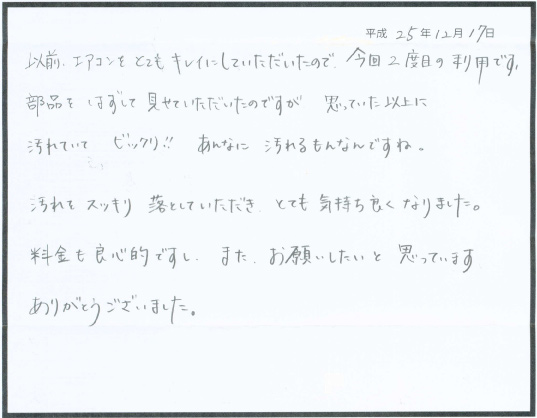 平成 25年12月17日
以前、エアコンをとてもキレイにしていただいたので、今回2度目の利用です。
部品をはずして見せていただいたのですが 思っていた以上に
汚れていて ビックリ!! あんなに 汚れるもんなんですね。
汚れもスッキリ 落としていただき、とても 気持ち良くなりました。
料金も良心的ですし、また、お願いしたいと 思っています
ありがとうございました。